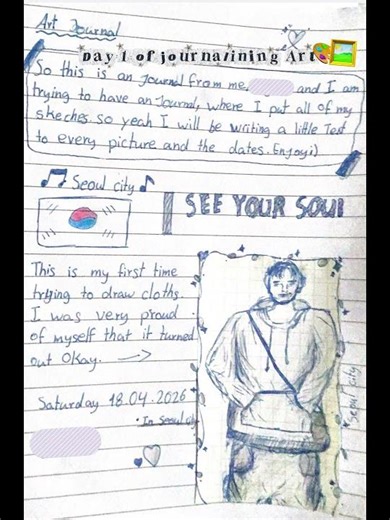 Art Journal
Day 1 of journalining Art
So this is an Journal from me, and I am
trying to have an Journal, where I put all of my
skeches. so yeah I will be writing a little Text
to every picture and the dates. Enjoy :)
Seoul city
I SEE YOUR SOUL
This is my first time
trying to draw cloths.
I was very proud
of myself that it turned
out Okay.
Saturday 18.04.2026
• In Seoul city
Seoul city